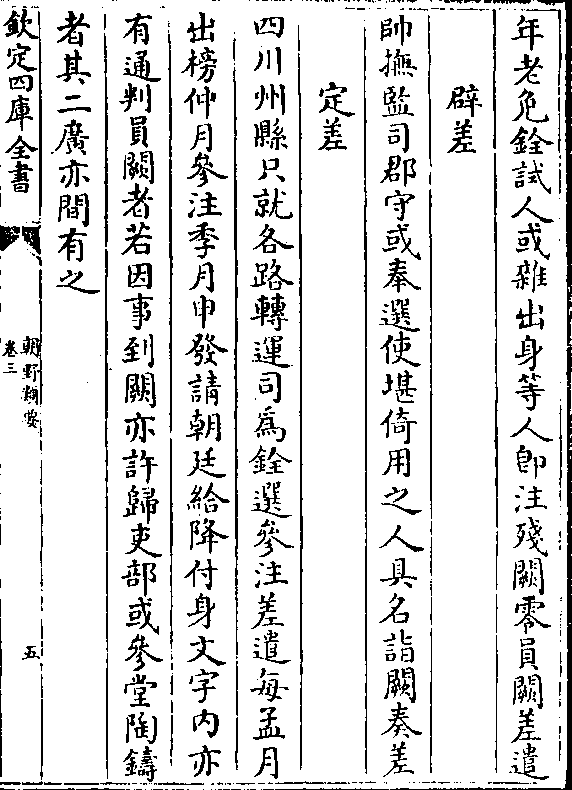 年老免銓試人或雜出身等人即注殘闕零員闕差遣
辟差
帥撫監司郡守或奉選使堪倚用之人具名詣闕奏差
定差
四川州縣只就各路轉運司為銓選參注差遣每孟月
出榜仲月參注季月申發請朝廷給降付身文字内亦
有通判員闕者若因事到闕亦許歸吏部或參堂陶鑄
者其二廣亦間有之
欽定四庫全書
朝野類要
卷三
五